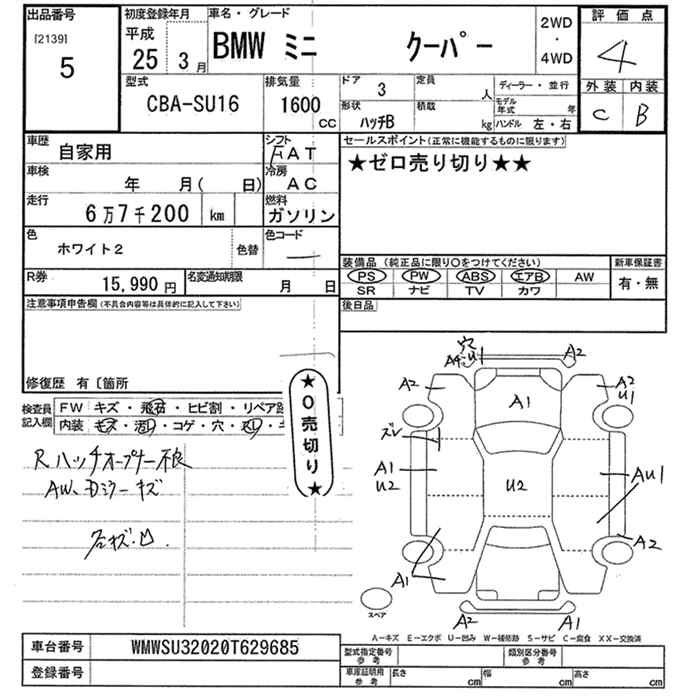 出品番号
[2139]
5
初度登録年月
平成
25 3 月
車名・グレード
BMW ミニ クーパー
2WD
・
4WD
評価点
4
外装 内装
C B
型式
CBA-SU16
排気量
1600 CC
ドア 3
形状 ハッチB
定員 人
積載 kg
ディーラー・並行
モデル年式 年
ハンドル 左・右
車歴
自家用
シフト
FAT
車検
年 月( 日)
冷房
AC
走行
6万7千200 km
燃料
ガソリン
色
ホワイト2
色替
色コード
R券
15,990 円
名変通知期限
月 日
セールスポイント(正常に機能するものに限ります)
★ゼロ売り切り★★
装備品(純正品に限り○をつけてください)
PS PW ABS エアB AW
SR ナビ TV カワ
新車保証書
有・無
後日品
注意事項申告欄(不具合内容等は具体的に記入して下さい)
修復歴 有〔箇所
検査員記入欄
FW キズ・飛石・ヒビ割・リペア跡
内装 キズ・汚レ・コゲ・穴・
★0売切り★
R ハッチオープナー不良
AW、Dミラーキズ
キズ・凹
穴
A4 U
A2
A2
A1
A2
U1
ズレ
A1
U2
U2
AU1
A2
A1
A2
A1
スペア
A―キズ E―エクボ U―凹み W―補修跡 S―サビ C―腐食 XX―交換済
車台番号
WMWSU32020T629685
登録番号
型式指定番号
参考
類別区分番号
参考
車庫証明用
参考
長さ cm
幅 cm
高さ cm